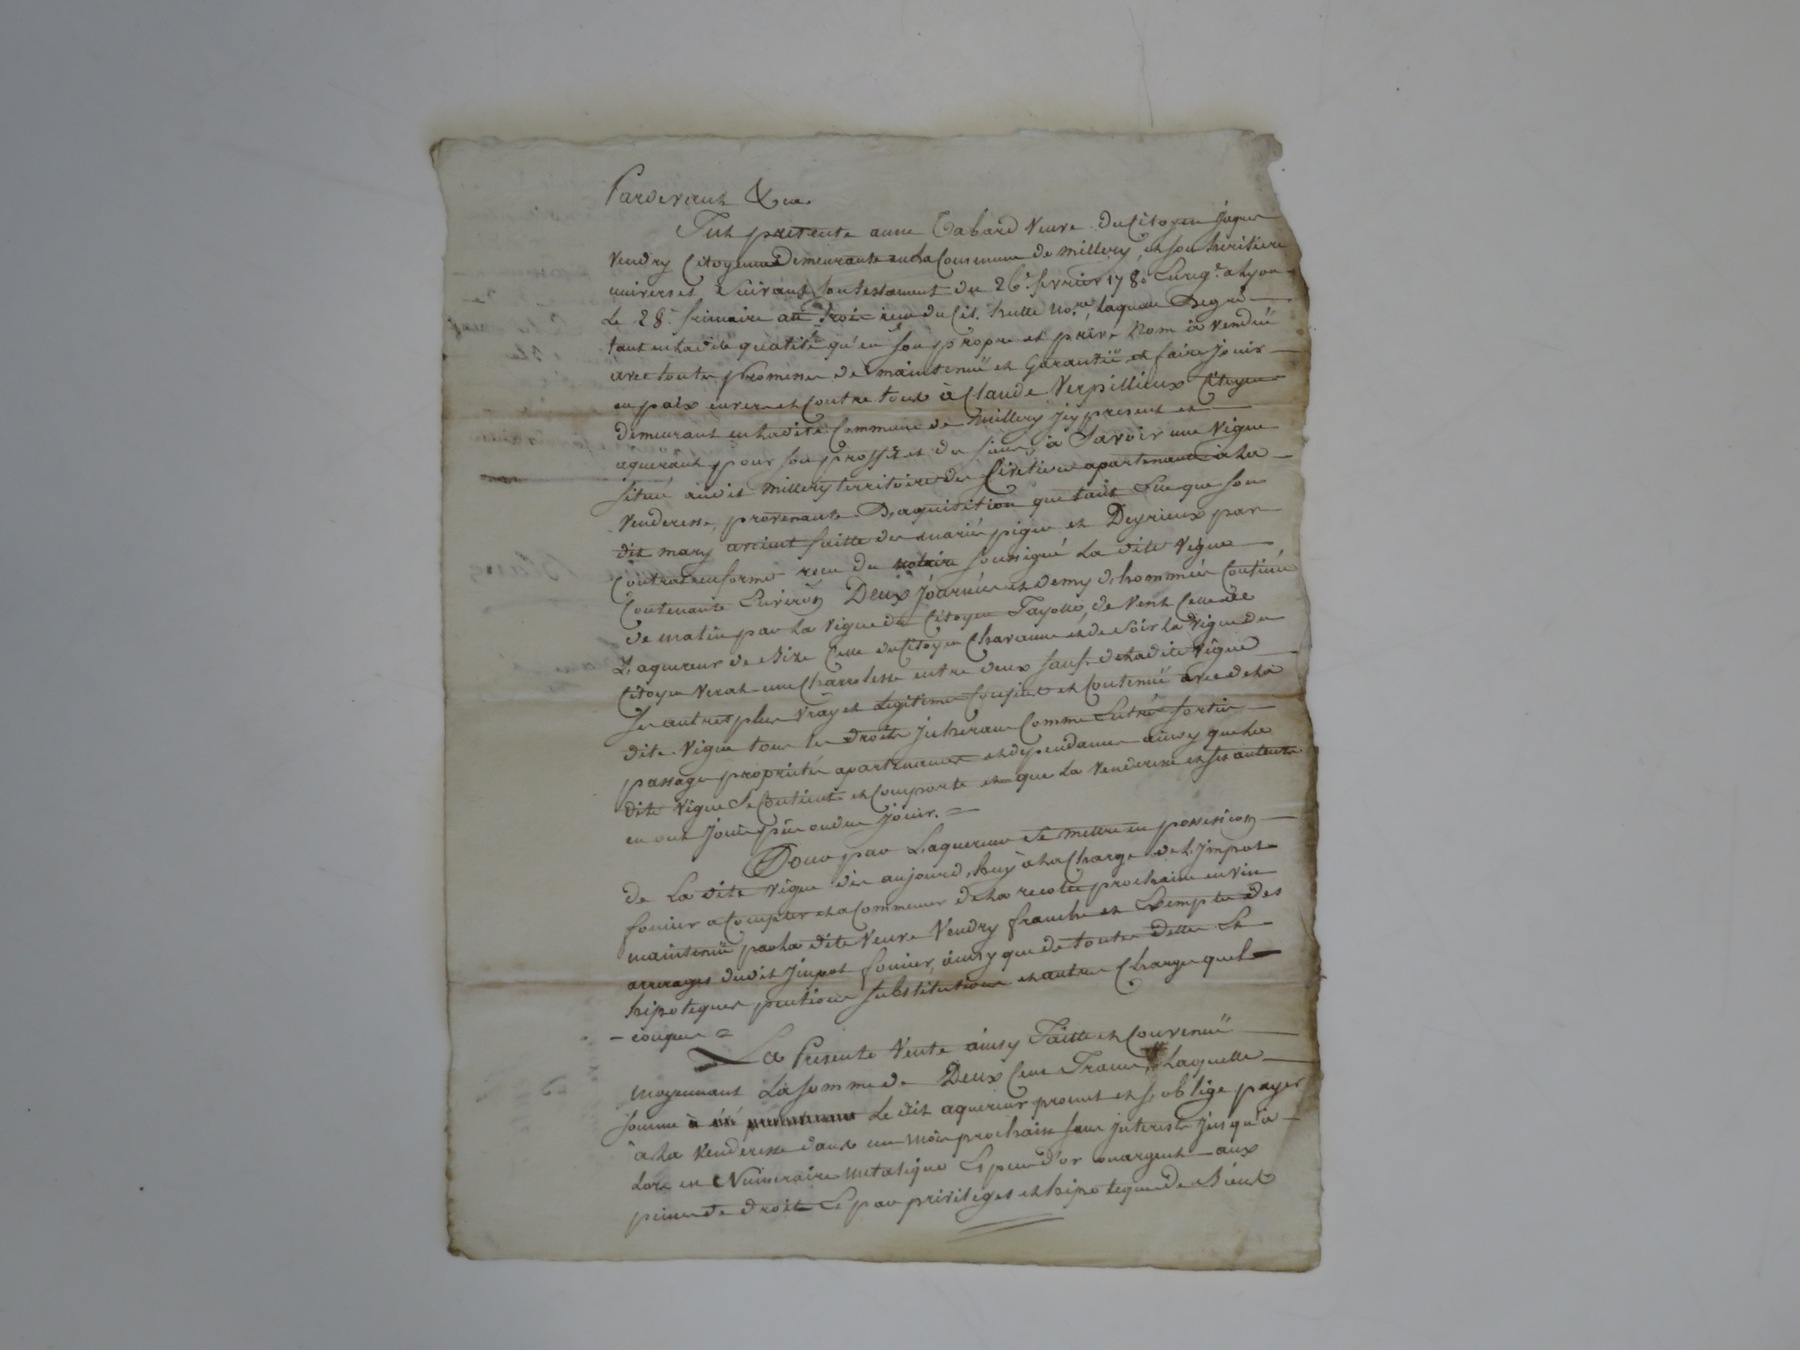 Pardevant &ca.
Fut presente anne Tabard veuve du Citoyen Jaque
Vendry Citoyenne Demeurante en la Commune de millery, et son heritiere
universel suivant son testament du 26e. fevrier 1780 Enreg.é a Lyon
Le 28e. frimaire an trois recu du Cit. hutte no.re, laquelle Degré
tant en ladite qualité qu'en son propre et privé Nom à vendüe
avec toutes promesses de maintenüe et Garantüe et faire jouir
en paix envers et Contre tous à Claude Verpillieux Citoyen
demeurant en ladite Commune de Millery jcy present et
aquerant pour son proffit et des siens, à Savoir une Vigne
situé audit Millery territoire des apartenante à la
Venderesse, provenante D'aquisition que tant Elle que son
dit mary avoient faitte des mariés pigne et Deyrieux par
Contrat en forme recu du notaire soussigné La dite Vigne
Contenante Environ Deux journées et demy d'hommée Continü
de matin par la Vigne du Citoyen Fayolle, de vent Celle de
L'aquereur de Bize Celle du Citoyen Chavanne et de soir la Vigne du
Citoyen Verat une Charolesse entre deux sauf de ladite Vigne
Ses autres plus Vray et Legitime Confins et Contenüe avec de la
dite Vigne tous les droits jnherans Comme Entrés sorties
passages proprietés apartenances et dependances ainsy que la
dite Vigne se Contient et Comporte et que la Venderesse et ses auteurs
en ont Jouis pü ou du Jouir. =
Pour par L'aquereur se mettre en possession
de La dite Vigne des aujourd,huy à la Charge de L'Jmpot
foncier a Compter et a Commencer de la recolte prochaine en vin
maintenüe par la dite Veuve Vendry franche et Exempte des
arrerages dudit Jmpot foncier, ainsy que de toutes dettes Et
hipoteques pentions substitutions et autres Charges quel-
-conques =
La Presente Vente ainsy Faitte et Convenüe
moyennant La somme de Deux Cens Francs, Laquelle
somme Le dit aquereur promet et s'oblige payer
à la Venderesse dans un mois prochain sans jnterets jusqu'à
Lors en Numeraire metalique Especes d'or ou argent aux
peines de droits Et par privileges et hipoteques de Biens